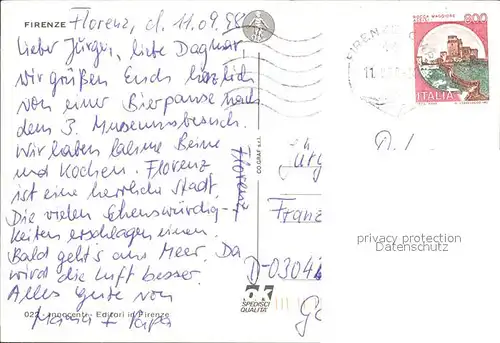 FIRENZE
Florenz, d. 11.09.98
Lieber Jürgen, liebe Dagmar,
wir grüßen Euch herzlich
von einer Bierpause nach
dem 3. Museumsbesuch.
Wir haben lahme Beine
und Kochen. Florenz
ist eine herrliche Stadt.
Die vielen Sehenswürdig-
keiten erschlagen einen.
Bald geht's ans Meer. Da
wird die Luft besser
Alles Gute von
Mama + Papa
Florenz
022 - Innocenti - Editori in Firenze
CO GRAF s.r.l.
OK
SPEDISCI
QUALITÀ
FIRENZE
11
MAGGIORE
800
ITALIA
D.
Jürg
Franz
D-0304
privacy protection
Datenschutz